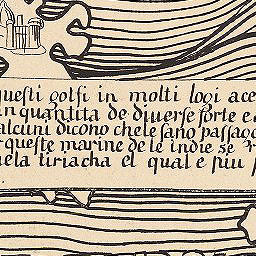 questi golfi in molti logi ace
in quantita de diuerse sorte e
alcuni dicono che le sano passag
queste marine de le indie se
ela tiriacha el qual e piu p